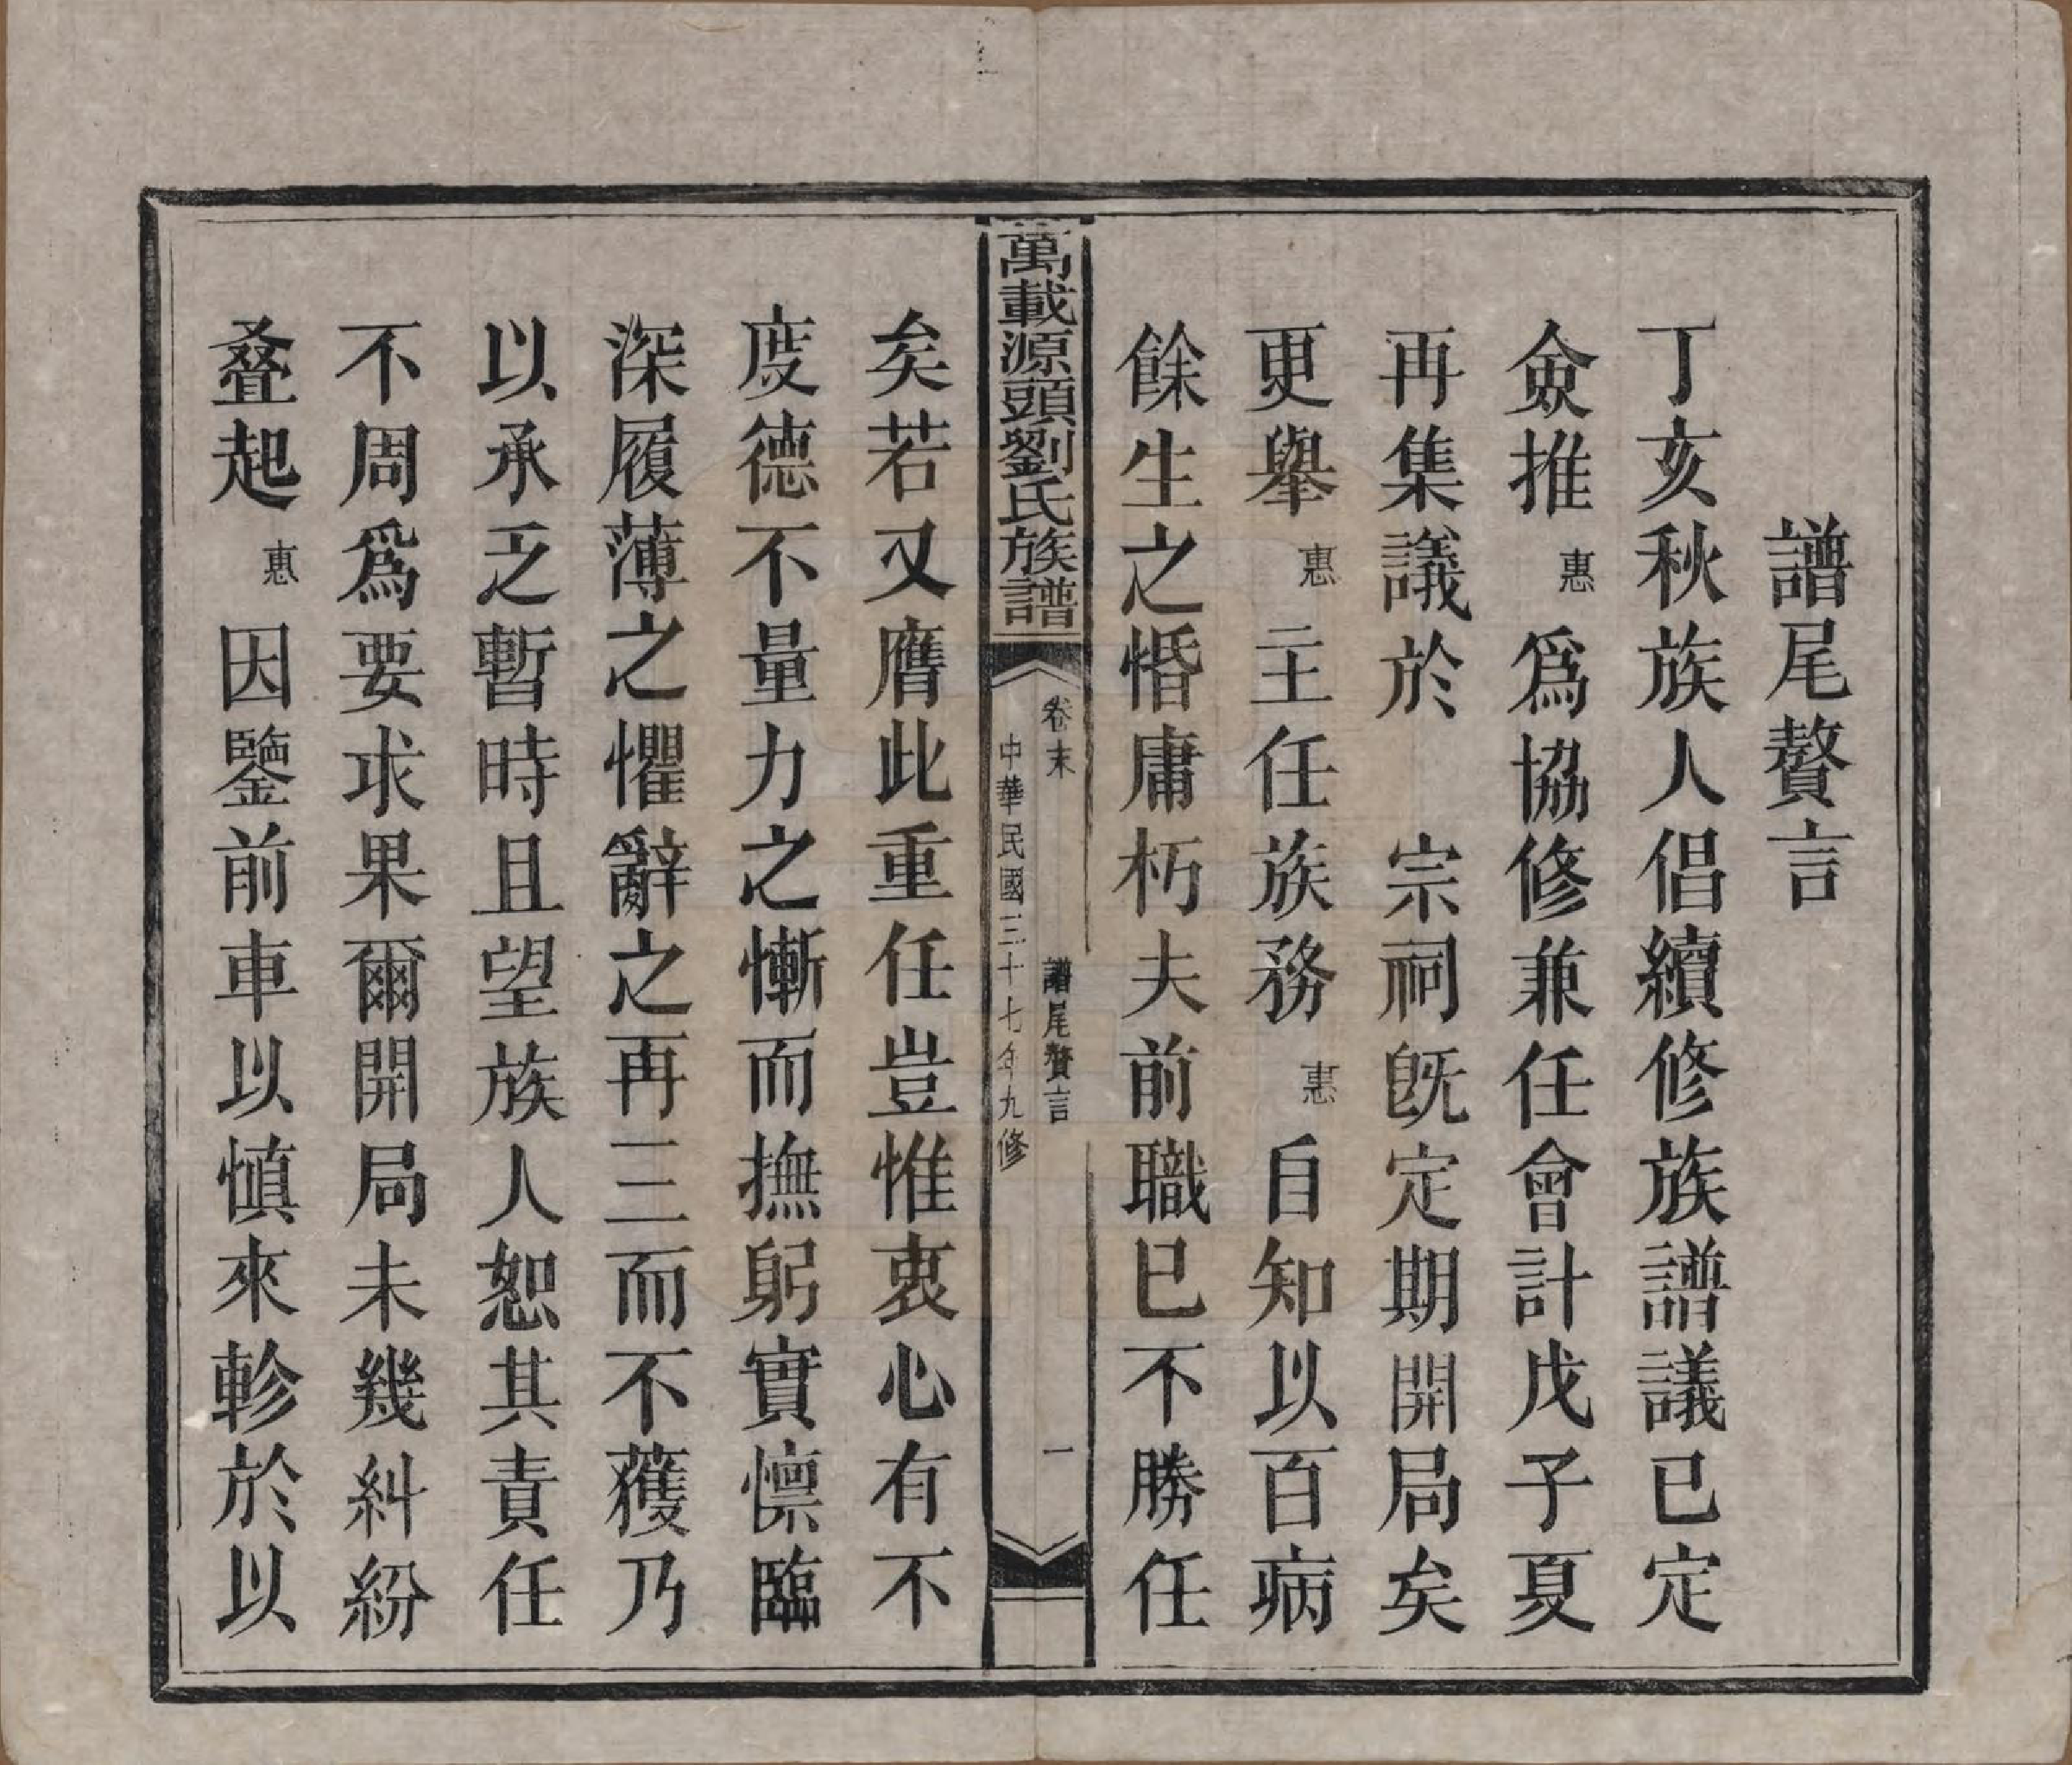 譜尾贅言
丁亥秋族人倡續修族譜議已定
僉推惠爲協修兼任會計戊子夏
再集議於　宗祠旣定期開局矣
更舉惠主任族務惠自知以百病
餘生之惛庸朽夫前職已不勝任
萬載源頭劉氏族譜
卷末　譜尾贅言　一
中華民國三十七年九修
矣若又膺此重任豈惟衷心有不
度德不量力之慚而撫躬實懍臨
深履薄之懼辭之再三而不獲乃
以承乏暫時且望族人恕其責任
不周爲要求果爾開局未幾糾紛
叠起惠因鑒前車以愼來軫於以